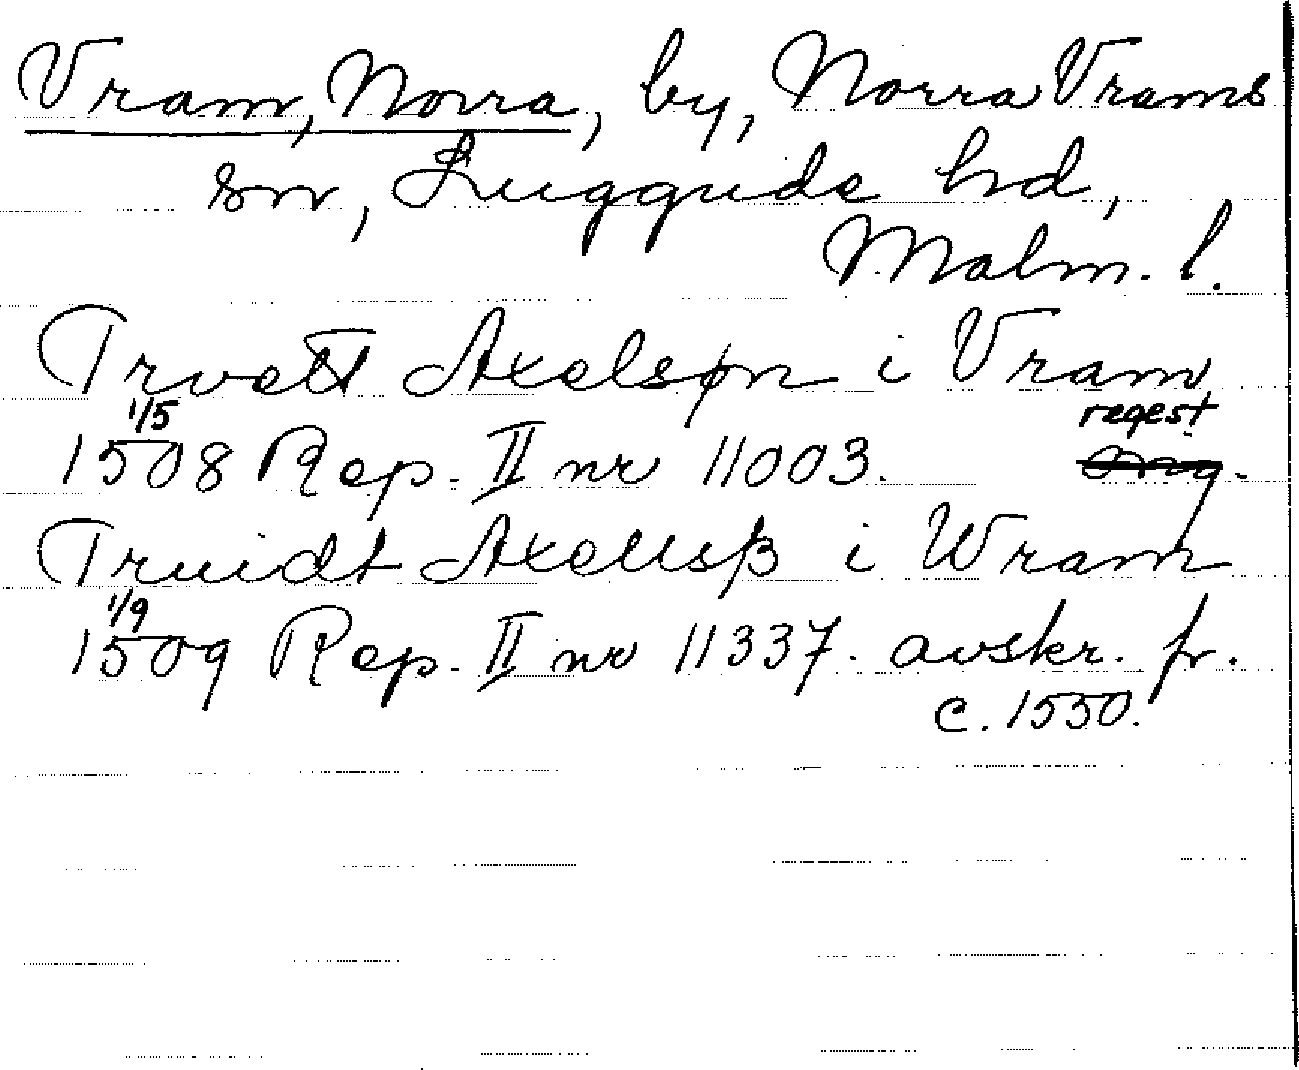 Vram, Norra, by, Norra Vrams
sn, Luggude hd,
Malm. l.
Trvett Axelsøn i Vram
1/5 regest
1508 Rep. II nr 11003.
Truidt Axellsß i Wram
1/9
1509 Rep. II nr 11337. avskr. fr.
c. 1550.